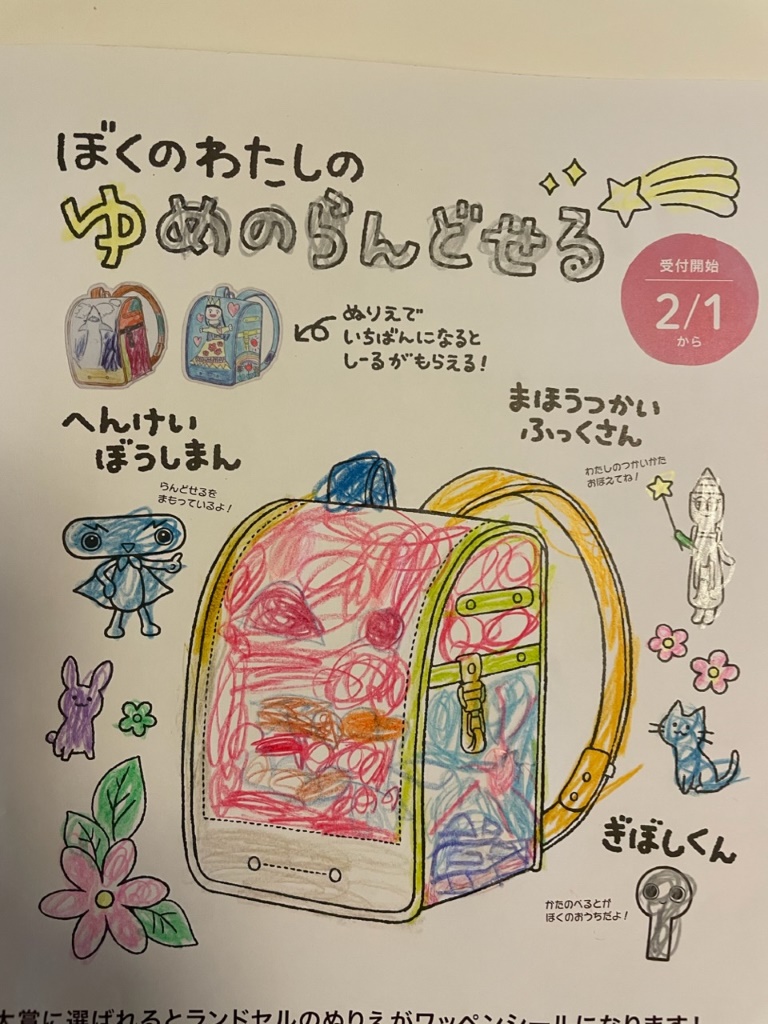 ぼくのわたしの
ゆめのらんどせる
受付開始
2/1
から
ぬりえで
いちばんになると
しーるがもらえる!
へんけい
ぼうしまん
らんどせるを
まもっているよ!
まほうつかい
ふっくさん
わたしのつかいかた
おぼえてね!
ぎぼしくん
かたのべるとが
ぼくのおうちだよ!
大賞に選ばれるとランドセルのぬりえがワッペンシールになります!